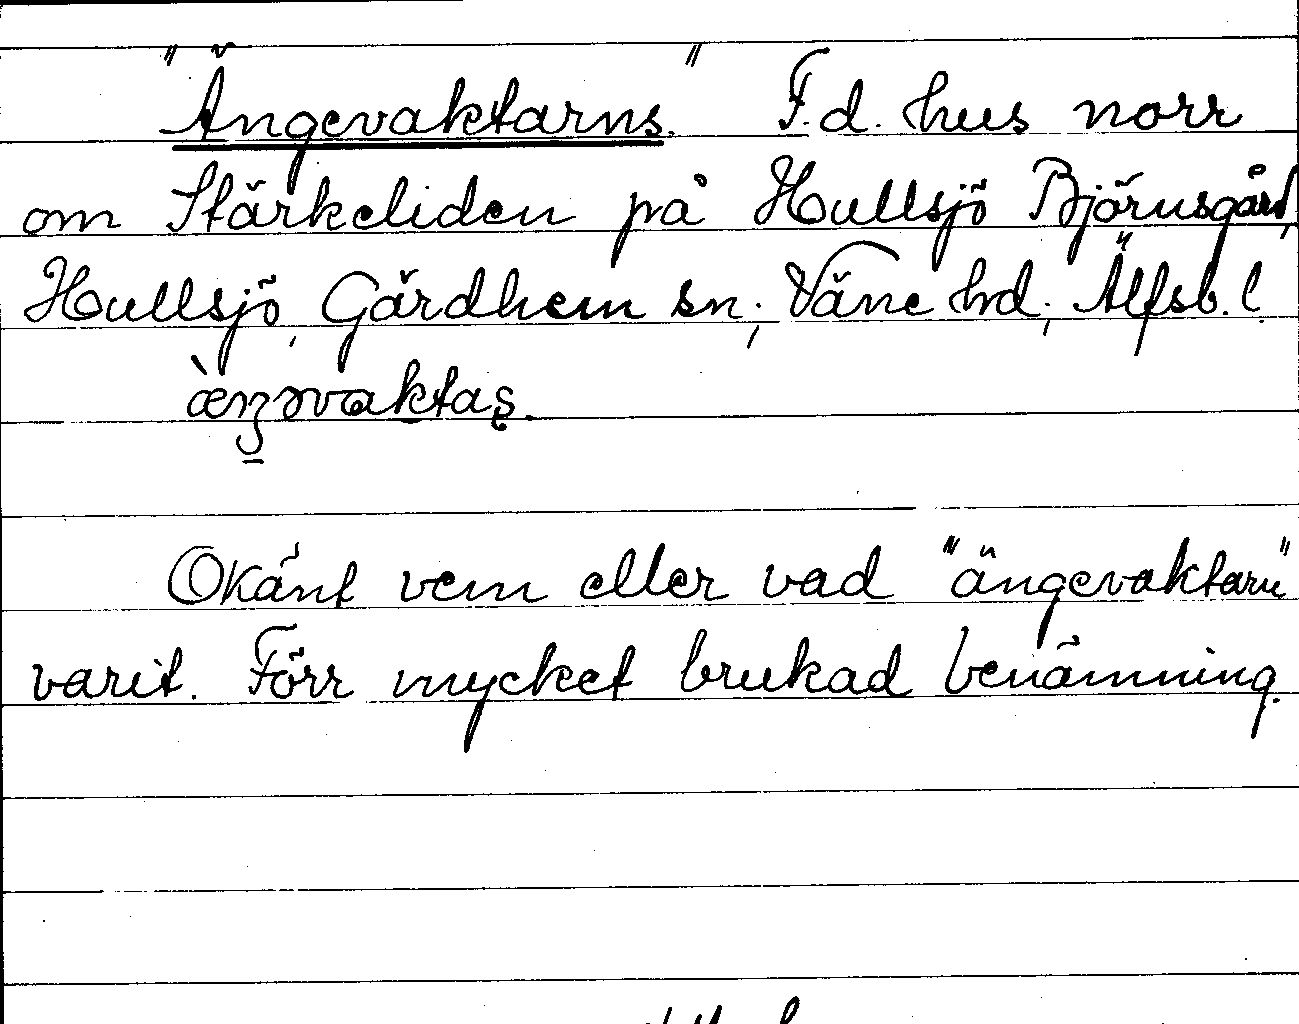 "Ängevaktarns." F.d. hus norr
om Stärkeliden på Hullsjö Björnsgård,
Hullsjö, Gärdhem sn; Väne hd; Älfsb. l.
Okänt vem eller vad "ängevaktarn"
varit. Förr mycket brukad benämning.